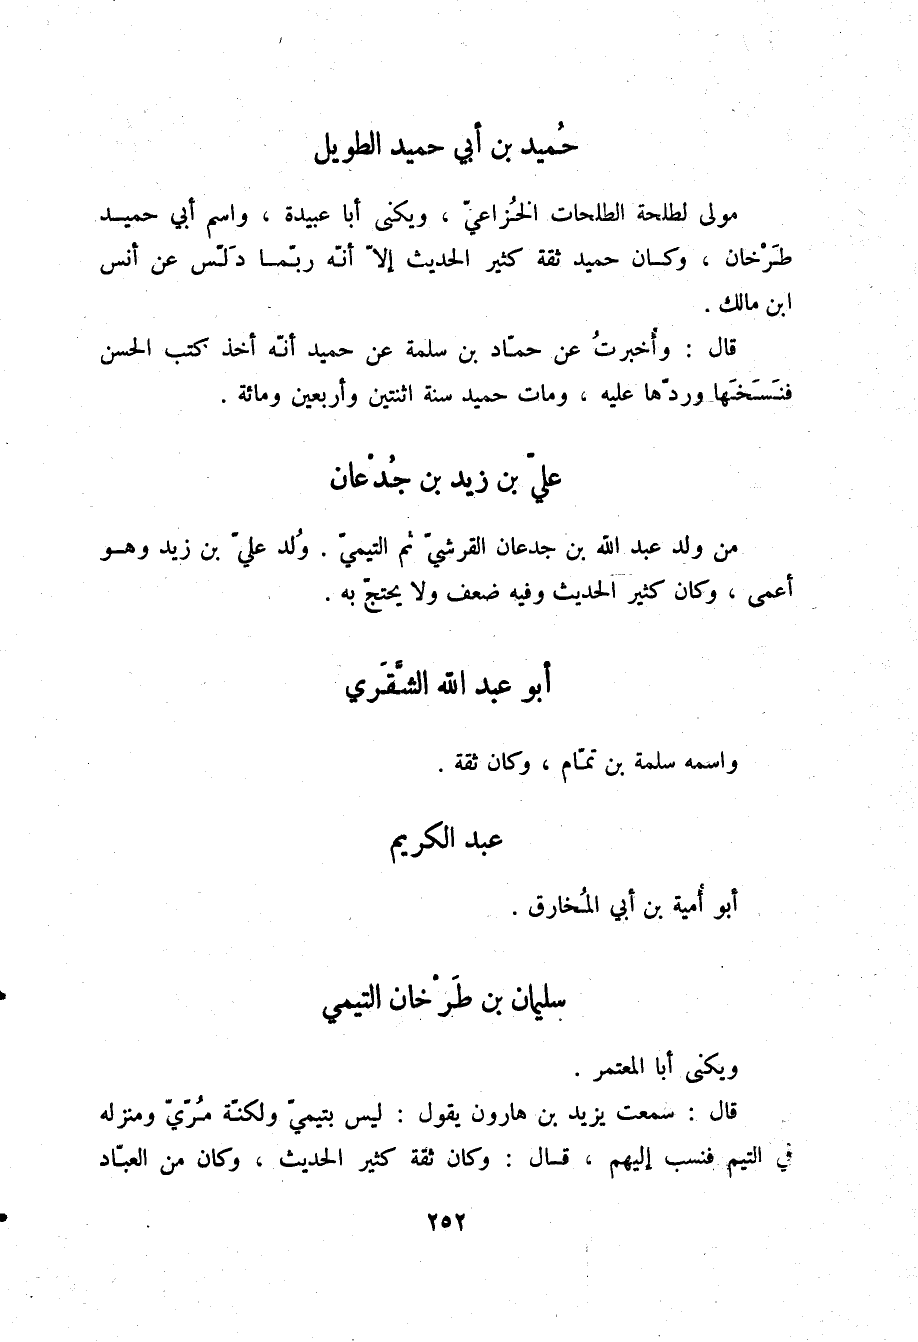 حُميد بن أبي حميد الطويل
مولى لطلحة الطلحات الخُزاعيّ ، ويكنى أبا عبيدة ، واسم أبي حميد
طَرْخان ، وكان حميد ثقة كثير الحديث إلاّ أنّه ربّما دَلّس عن أنس
ابن مالك .
قال : وأُخبرتُ عن حمّاد بن سلمة عن حميد أنّه أخذ كتب الحسن
فنَسَخَها وردّها عليه ، ومات حميد سنة اثنتين وأربعين ومائة .
عليّ بن زيد بن جُدْعان
من ولد عبد الله بن جدعان القرشيّ ثم التيميّ . وُلد عليّ بن زيد وهو
أعمى ، وكان كثير الحديث وفيه ضعف ولا يحتجّ به .
أبو عبد الله الشَّقَري
واسمه سلمة بن تمّام ، وكان ثقة .
عبد الكريم
أبو أُمية بن أبي المُخارق .
سليمان بن طَرْخان التيمي
ويكنى أبا المعتمر .
قال : سمعت يزيد بن هارون يقول : ليس بتيميّ ولكنّة مُرّيّ ومنزله
في التيم فنسب إليهم ، قال : وكان ثقة كثير الحديث ، وكان من العبّاد
٢٥٢